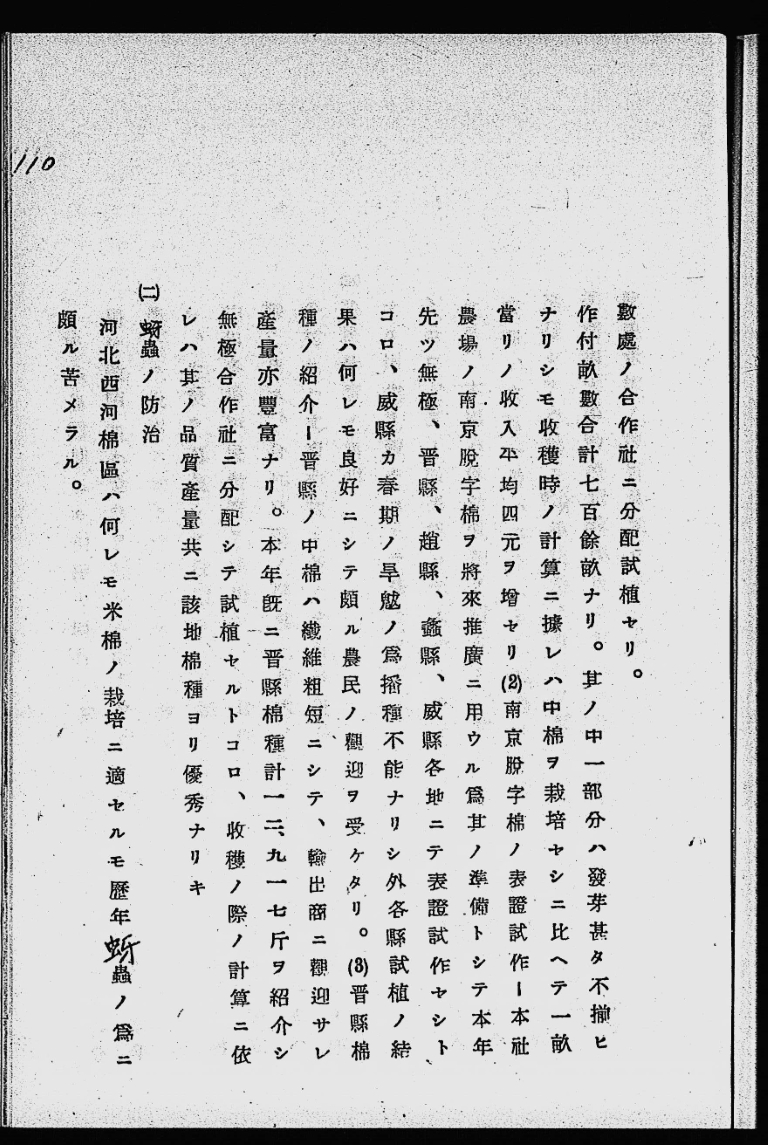 110
數處ノ合作社ニ分配試植セリ。
作付畝數合計七百餘畝ナリ。其ノ中一部分ハ發芽甚タ不揃ヒ
ナリシモ收穫時ノ計算ニ據レハ中棉ヲ栽培セシニ比ヘテ一畝
當リノ收入平均四元ヲ增セリ(2)南京脫字棉ノ表證試作ー本社
農場ノ南京脫字棉ヲ將來推廣ニ用ウル爲其ノ準備トシテ本年
先ツ無極、晋縣、趙縣、蠡縣、威縣各地ニテ表證試作セシト
コロ、威縣カ春期ノ旱魃ノ爲播種不能ナリシ外各縣試植ノ結
果ハ何レモ良好ニシテ頗ル農民ノ歡迎ヲ受ケタリ。(3)晋縣棉
種ノ紹介ー晋縣ノ中棉ハ纖維粗短ニシテ、輸出商ニ歡迎サレ
產量亦豐富ナリ。本年旣ニ晋縣棉種計一二、九一七斤ヲ紹介シ
無極合作社ニ分配シテ試植セルトコロ、收穫ノ際ノ計算ニ依
レハ其ノ品質產量共ニ該地棉種ヨリ優秀ナリキ
㈡蚜蟲ノ防治
河北西河棉區ハ何レモ米棉ノ栽培ニ適セルモ歷年蚜蟲ノ爲ニ
頗ル苦メラル。